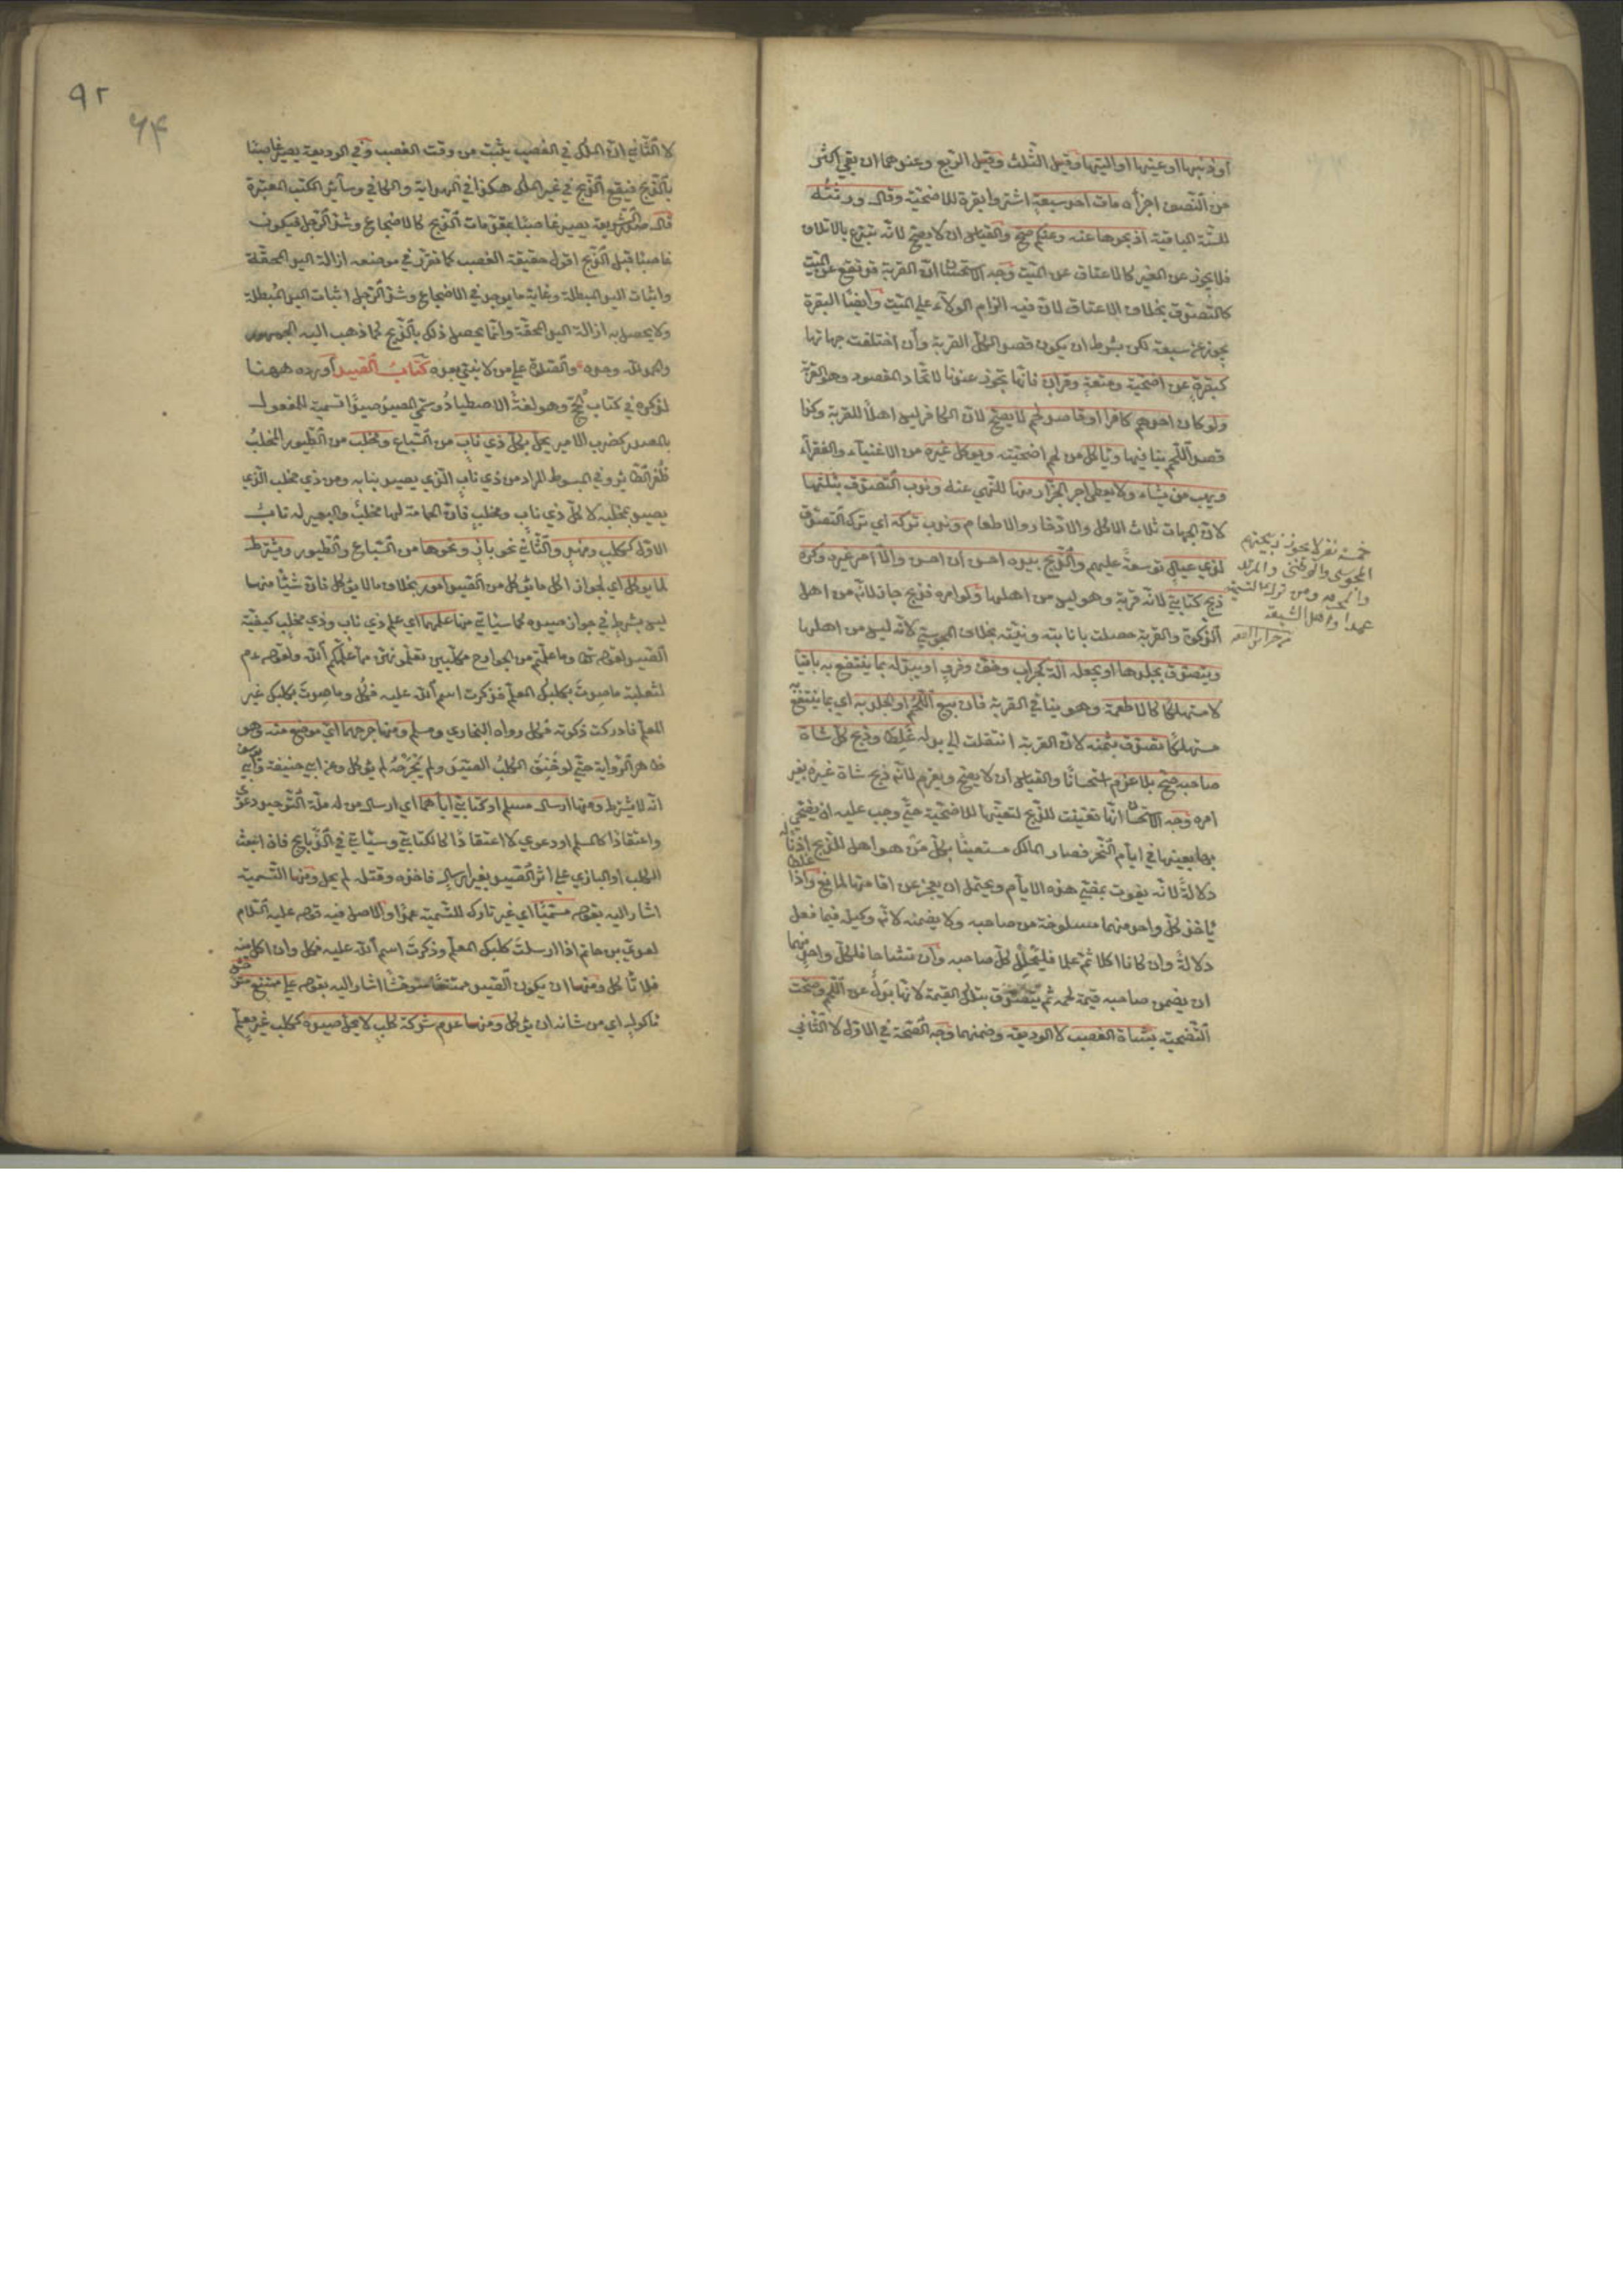 او ذنبها او عينها او اليتها وقيل الثلث وقيل الربع وعندهما ان بقي اكثر
من النصف اجزأه مات احد سبعة اشتروا بقرة للاضحية وقال ورثته
للستة الباقية اذبحوها عنه وعنكم صح والقياس ان لا يصح لانه تبرع بالاتلاف
فلا يجوز عن الغير كالاعتاق عن الميت وجه الاستحسان ان القربة قد تقع عن الميت
كالتصدق بخلاف الاعتاق لان فيه الزام الولاء علي الميت وايضا البقرة
يجوز عن سبعة لكن بشرط ان يكون قصد الكل القربة وان اختلفت جهاتها
كبقرة عن اضحية ومتعة وقران فانها تجوز عندنا لاتحاد المقصود وهو القربة
ولو كان احدهم كافرا او قاصد لحم لا يصح لان الكافر ليس اهلا للقربة وكذا
قصد اللحم ينافيها ويأكل من لحم اضحيته ويوكل غيره من الاغنياء والفقراء
ويهب من يشاء ولا يعطي اجر الجزار منها للنهي عنه وندب التصدق بثلثها
لان الجهات ثلاث الاكل والادخار والاطعام وندب تركه اي ترك التصدق
لذي عيال توسعة عليهم والذبح بيده احسن ان احسن والا امر غيره وكره
ذبح كتابي لانه قربة وهو ليس من اهلها ولو امره فذبح جاز لانه من اهل
الذكوة والقربة حصلت بانابته ونيته بخلاف المجوسي لانه ليس من اهلها
ويتصدق بجلدها او يجعله آلة كجراب وخف وفرو او يبدله بما ينتفع به باقيا
لا مستهلكا كالاطعمة وهو ينافي القربة فان بيع اللحم او الجلد به اي بما ينتفع به
مستهلكا تصدق بثمنه لان القربة انتقلت الي بدله غلطا وذبح كل شاة
صاحبه صح بلا غرم استحسانا والقياس ان لا يصح ويغرم لانه ذبح شاة غيره بغير
امره وجه الاستحسان انها تعينت للذبح لتعينها للاضحية حتي وجب عليه ان يضحي
بها بعينها في ايام النحر فصار المالك مستعينا بكل من هو اهل للذبح اذنا له
دلالة لانه يفوت بمضي هذه الايام ويحتمل ان يعجز عن اقامتها لمانع واذا غلطا
يأخذ كل واحد منهما مسلوخة من صاحبه ولا يضمنه لانه وكيله فيما فعل
دلالة وان كانا اكلا ثم علما فليحلل كل صاحبه وان تشاحا فلكل واحد منهما
ان يضمن صاحبه قيمة لحمه ثم يتصدق بتلك القيمة لانها بدل عن اللحم وصحت
التضحية بشاة الغصب لا الوديعة وضمنهما وجه الصحة في الاول لا الثاني
خمسة نفر لا يجوز ذبيحتهم
المجوسي والوثني والمرتد
ومن ترك التسمية
عمدا واهل الشيعة
٩٢
٦٤
لا الثاني ان الملك في الغصب يثبت من وقت الغصب وفي الوديعة يصير غاصبا
بالذبح فيقع الذبح في غير الملك هكذا في الهداية والكافي وسائر الكتب المعتبرة
قال صدر الشريعة يصير غاصبا بمقدمات الذبح كالاضجاع وشد الرجل فيكون
غاصبا قبل الذبح اقول حقيقة الغصب كما تقرر في موضعه ازالة اليد المحقة
واثبات اليد المبطلة وغاية ما يوجد في الاضجاع وشد الرجل اثبات اليد المبطلة
ولا يحصل به ازالة اليد المحقة وانما يحصل ذلك بالذبح كما ذهب اليه الجمهور
والحمد لله وحده والصلاة علي من لا نبي بعده كتاب الصيد اورده ههنا
لذكره في كتاب الحج وهو لغة الاصطياد وسمي المصيد صيدا تسمية للمفعول
بالمصدر كضرب الامير يحل بكل ذي ناب من السباع ومخلب من الطيور المخلب
ظفر الطائر وفي المبسوط المراد من ذي ناب الذي يصيد بنابه ومن ذي مخلب الذي
يصيد بمخلبه لا كل ذي ناب ومخلب فان الحمامة لها مخلب والبعير له ناب
الاول ككلب وفهد والثاني نحو باز ونحوها من السباع والطيور ويشترط
لما يوكل اي لجواز اكل ما يؤكل من الصيد امور بخلاف ما لا يؤكل فان شيئا منها
ليس بشرط في جواز صيده كما سيأتي منها علمهما اي علم ذي ناب وذي مخلب كيفية
الصيد لقوله تعالى وما علمتم من الجوارح مكلبين تعلمونهن مما علمكم الله ولقوله عم
لثعلبة ما صدت بكلبك المعلم فذكرت اسم الله عليه فكل وما صدت بكلبك غير
المعلم فادركت ذكوته فكل رواه البخاري ومسلم ومنها جرحهما اي موضع منه وهو
ظاهر الرواية حتي لو خنق الكلب الصيد ولم يجرحه لم يؤكل وعن ابي حنيفة وابي يوسف
انه لا يشترط ومنها ارسال مسلم او كتابي اياهما اي ارسال من له ملة التوحيد دعوى
واعتقادا كالمسلم او دعوي لا اعتقادا كالكتابي وسيأتي في الذبايح فان انبعث
الكلب او البازي علي اثر الصيد بغير ارسال فاخذه وقتله لم يحل ومنها التسمية
اشار اليه بقوله مسميا اي غير تارك للتسمية عمدا والاصل فيه قوله عليه السلام
لعدي بن حاتم اذا ارسلت كلبك المعلم وذكرت اسم الله عليه فكل وان اكل منه
فلا تأكل ومنها ان يكون الصيد ممتنعا متوحشا اشار اليه بقوله علي ممتنع متوحش
مأكول اي من شانه ان يؤكل ومنها عدم شركة كلب لا يحل صيده ككلب غير معلم